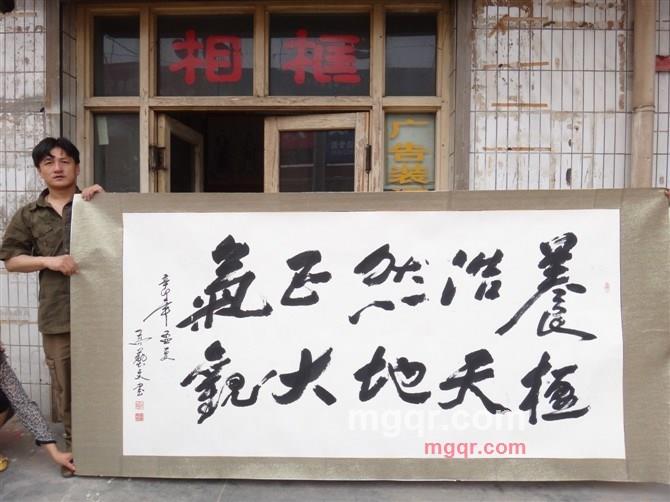 相框
广告装
養浩然正氣
極天地大觀
辛卯年孟夏
mgqr.com
mgqr.com